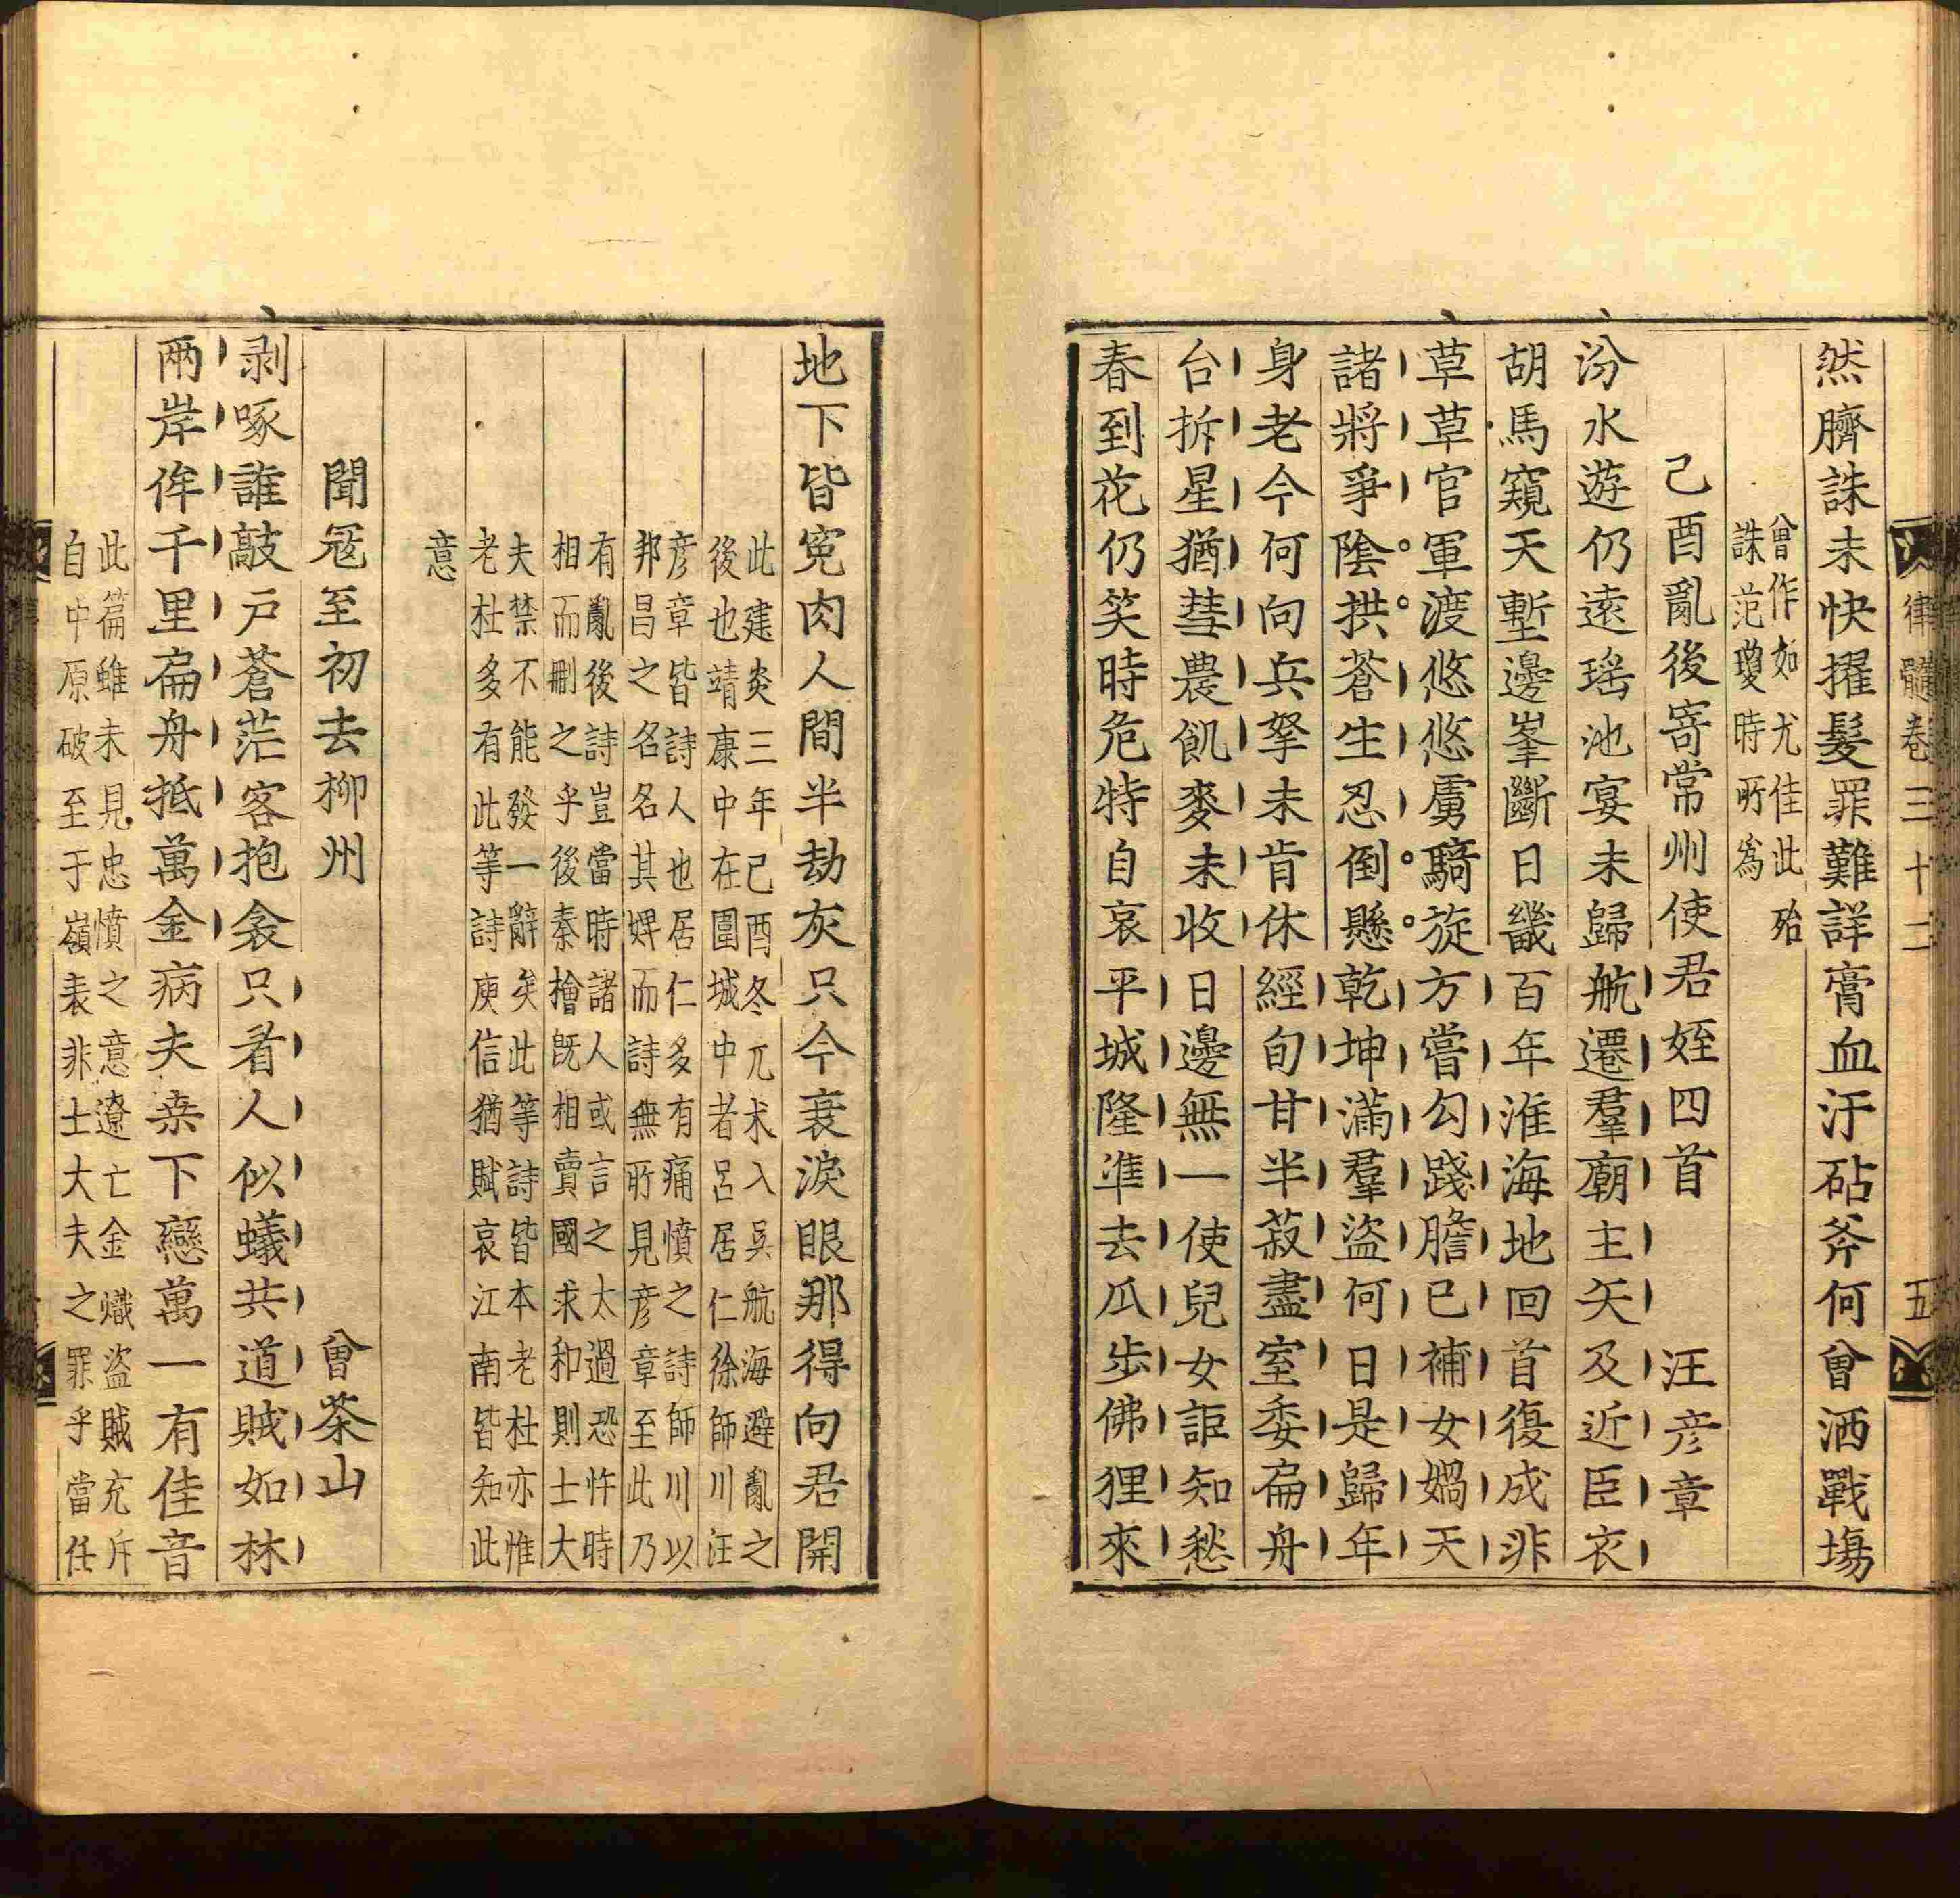 律髓卷三十二 五
然臍誅未快擢髮罪難詳膏血汙砧斧何曾洒戰塲
曾作如尤佳此殆
誅范瓊時所爲
己酉亂後寄常州使君姪四首 汪彦章
汾水遊仍遠瑶池宴未歸航遷羣廟主矢及近臣衣
胡馬窺天塹邊峯斷日畿百年淮海地回首復成非
草草官軍渡悠悠虜騎旋方嘗勾踐膽已補女媧天
諸將爭陰拱蒼生忍倒懸乾坤滿羣盜何日是歸年
身老今何向兵拏未肯休經旬甘半菽盡室委扁舟
台拆星猶彗農飢麥未收日邊無一使兒女詎知愁
春到花仍笑時危特自哀平城隆準去瓜步佛狸來
地下皆寃肉人間半劫灰只今衰淚眼那得向君開
此建炎三年己酉冬兀术入吳航海避亂之
後也靖康中在圍城中者呂居仁徐師川汪
彦章皆詩人也居仁多有痛憤之詩師川以
邦昌之名名其婢而詩無所見彦章至此乃
有亂後詩豈當時諸人或言之太過恐忤時
相而刪之乎後秦檜旣相賣國求和則士大
夫禁不能發一辭矣此等詩皆本老杜亦惟
老杜多有此等詩庾信猶賦哀江南皆知此
意
聞冦至初去柳州 曾茶山
剥啄誰敲戸蒼茫客抱衾只看人似蟻共道賊如林
兩岸侔千里扁舟抵萬金病夫桒下戀萬一有佳音
此篇雖未見忠憤之意遼亡金熾盜賊充斥
自中原破至于嶺表非士大夫之罪乎當任